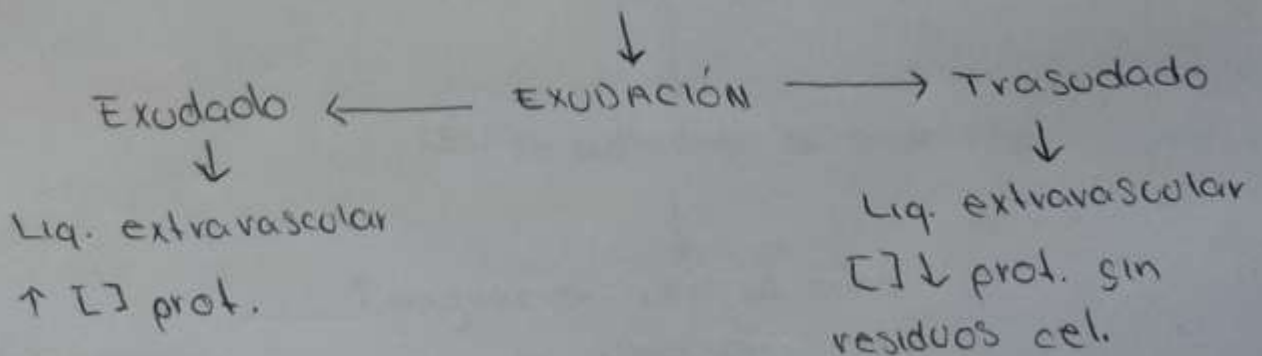 Exudado ← EXUDACIÓN → Trasudado
Liq. extravascular
↑ [ ] prot.
Liq. extravascular
[ ] ↓ prot. sin
residuos cel.